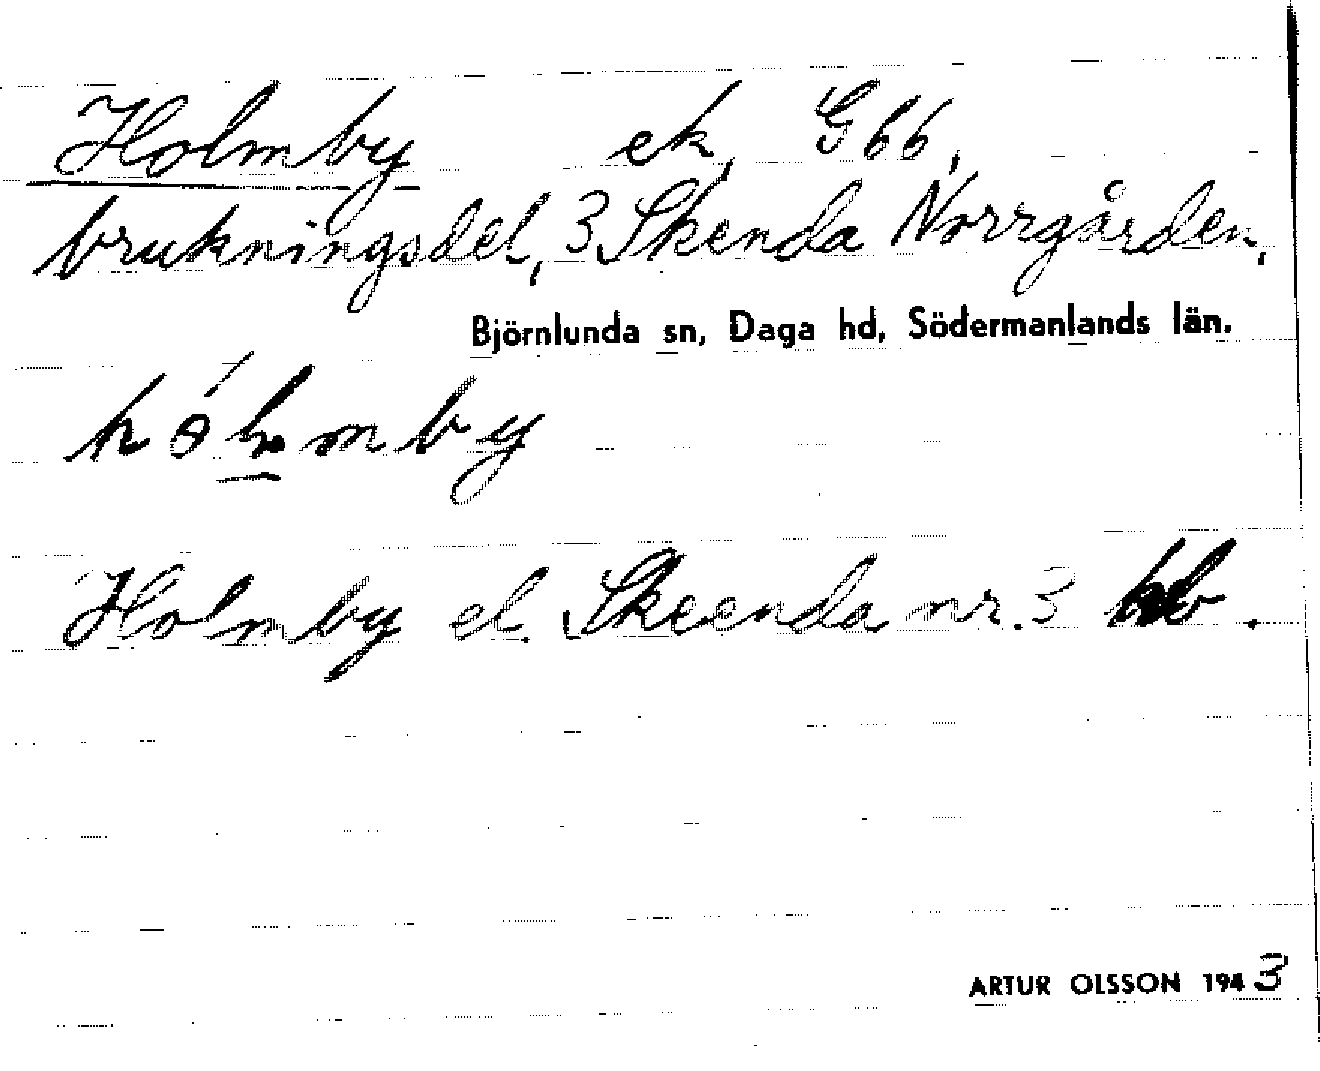 Holmby ek, G 66,
brukningsdel, 3 Skenda Norrgården,
Björnlunda sn, Daga hd, Södermanlands län.
Holmby el. Skeenda nr. 3
ARTUR OLSSON 1943